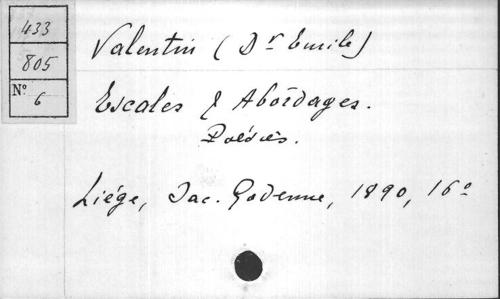 433
805
N° 6
Valentin (Dr Emile)
Escales & Abordages.
Poésies.
Liége, Jac. Godenne, 1890, 16°